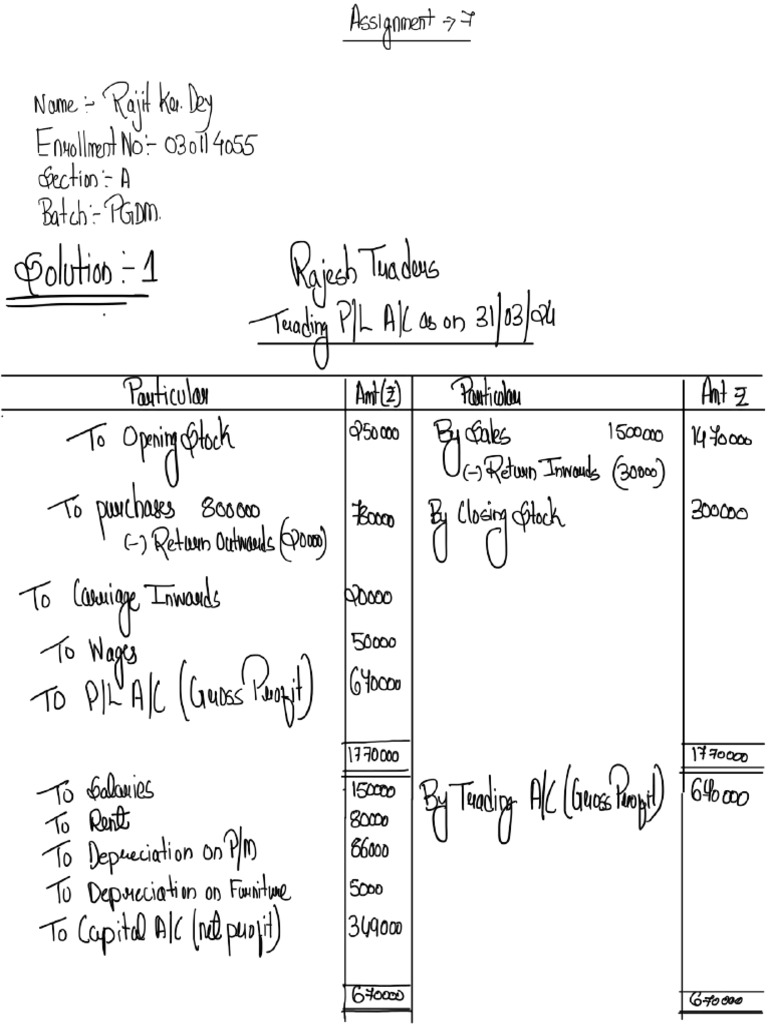 Assignment → 7
Name :- Rajit Kr. Dey
Enrollment No :- 030114055
Section :- A
Batch :- PGDM.
Solution :- 1
Rajesh Traders
Trading P/L A/C as on 31/03/24
Particular Amt (₹) Particular Amt ₹
To Opening Stock 250000 By Sales 1500000 1470000
(-) Return Inwards (30000)
To purchases 800000 780000 By Closing Stock 300000
(-) Return Outwards (20000)
To Carriage Inwards 20000
To Wages 50000
To P/L A/C (Gross Profit) 670000
1770000 1770000
To Salaries 150000 By Trading A/C (Gross Profit) 670000
To Rent 80000
To Depreciation on P/M 86000
To Depreciation on Furniture 5000
To Capital A/C (net profit) 349000
670000 670000